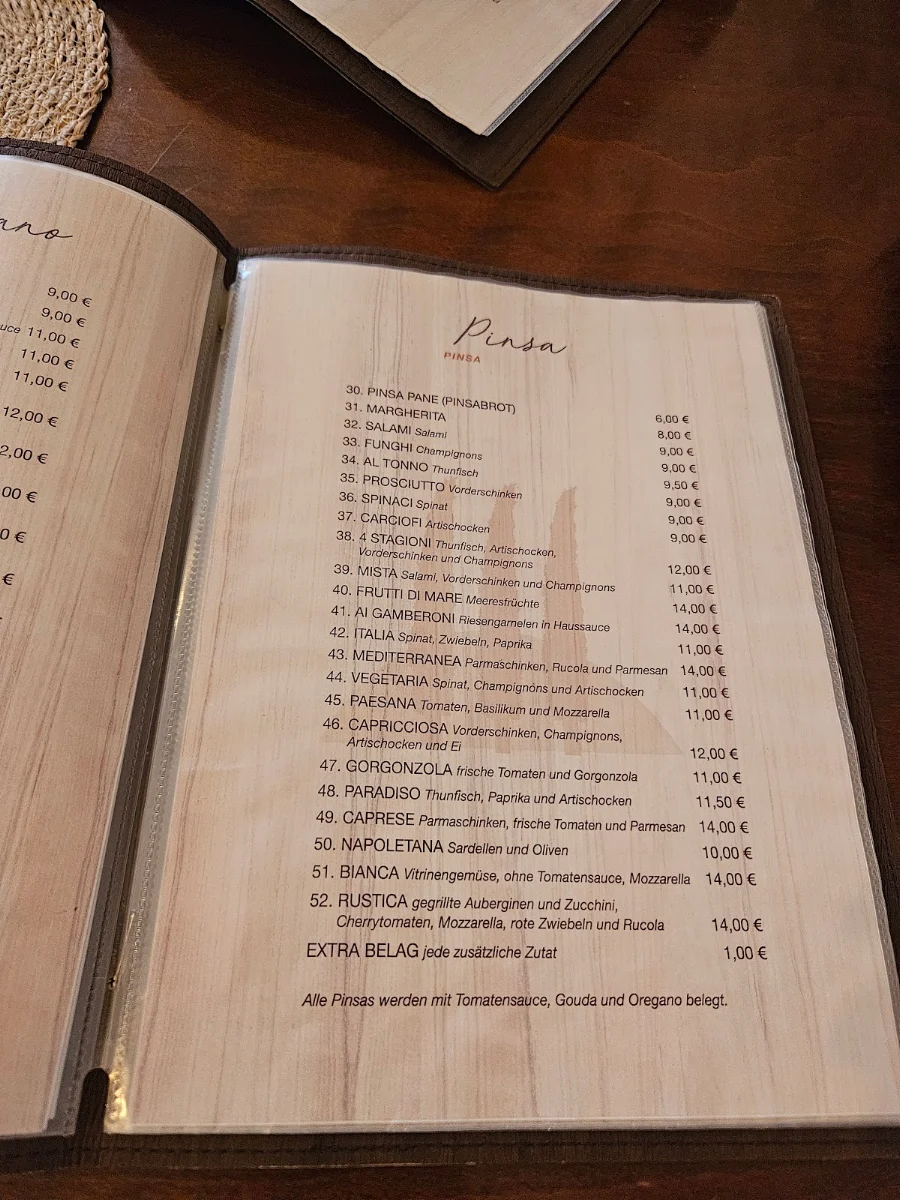 ano
9,00 €
9,00 €
uce 11,00 €
11,00 €
11,00 €
12,00 €
2,00 €
00 €
0 €
€
Pinsa
PINSA
30. PINSA PANE (PINSABROT) 6,00 €
31. MARGHERITA 8,00 €
32. SALAMI Salami 9,00 €
33. FUNGHI Champignons 9,00 €
34. AL TONNO Thunfisch 9,50 €
35. PROSCIUTTO Vorderschinken 9,00 €
36. SPINACI Spinat 9,00 €
37. CARCIOFI Artischocken 9,00 €
38. 4 STAGIONI Thunfisch, Artischocken,
Vorderschinken und Champignons 12,00 €
39. MISTA Salami, Vorderschinken und Champignons 11,00 €
40. FRUTTI DI MARE Meeresfrüchte 14,00 €
41. AI GAMBERONI Riesengarnelen in Haussauce 14,00 €
42. ITALIA Spinat, Zwiebeln, Paprika 11,00 €
43. MEDITERRANEA Parmaschinken, Rucola und Parmesan 14,00 €
44. VEGETARIA Spinat, Champignons und Artischocken 11,00 €
45. PAESANA Tomaten, Basilikum und Mozzarella 11,00 €
46. CAPRICCIOSA Vorderschinken, Champignons,
Artischocken und Ei 12,00 €
47. GORGONZOLA frische Tomaten und Gorgonzola 11,00 €
48. PARADISO Thunfisch, Paprika und Artischocken 11,50 €
49. CAPRESE Parmaschinken, frische Tomaten und Parmesan 14,00 €
50. NAPOLETANA Sardellen und Oliven 10,00 €
51. BIANCA Vitrinengemüse, ohne Tomatensauce, Mozzarella 14,00 €
52. RUSTICA gegrillte Auberginen und Zucchini,
Cherrytomaten, Mozzarella, rote Zwiebeln und Rucola 14,00 €
EXTRA BELAG jede zusätzliche Zutat 1,00 €
Alle Pinsas werden mit Tomatensauce, Gouda und Oregano belegt.